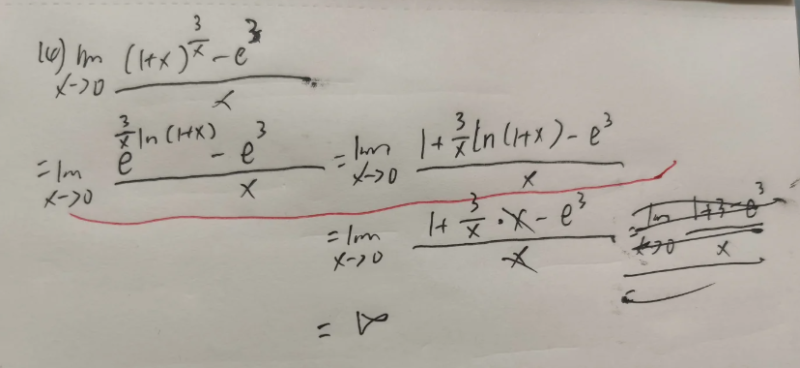 (6) lim_{x->0} \frac{(1+x)^{\frac{3}{x}} - e^3}{x}
= lim_{x->0} \frac{e^{\frac{3}{x} ln(1+x)} - e^3}{x} = lim_{x->0} \frac{1 + \frac{3}{x} ln(1+x) - e^3}{x}
= lim_{x->0} \frac{1 + \frac{3}{x} · x - e^3}{x} = lim_{x->0} \frac{1+3-e^3}{x}
= ∞